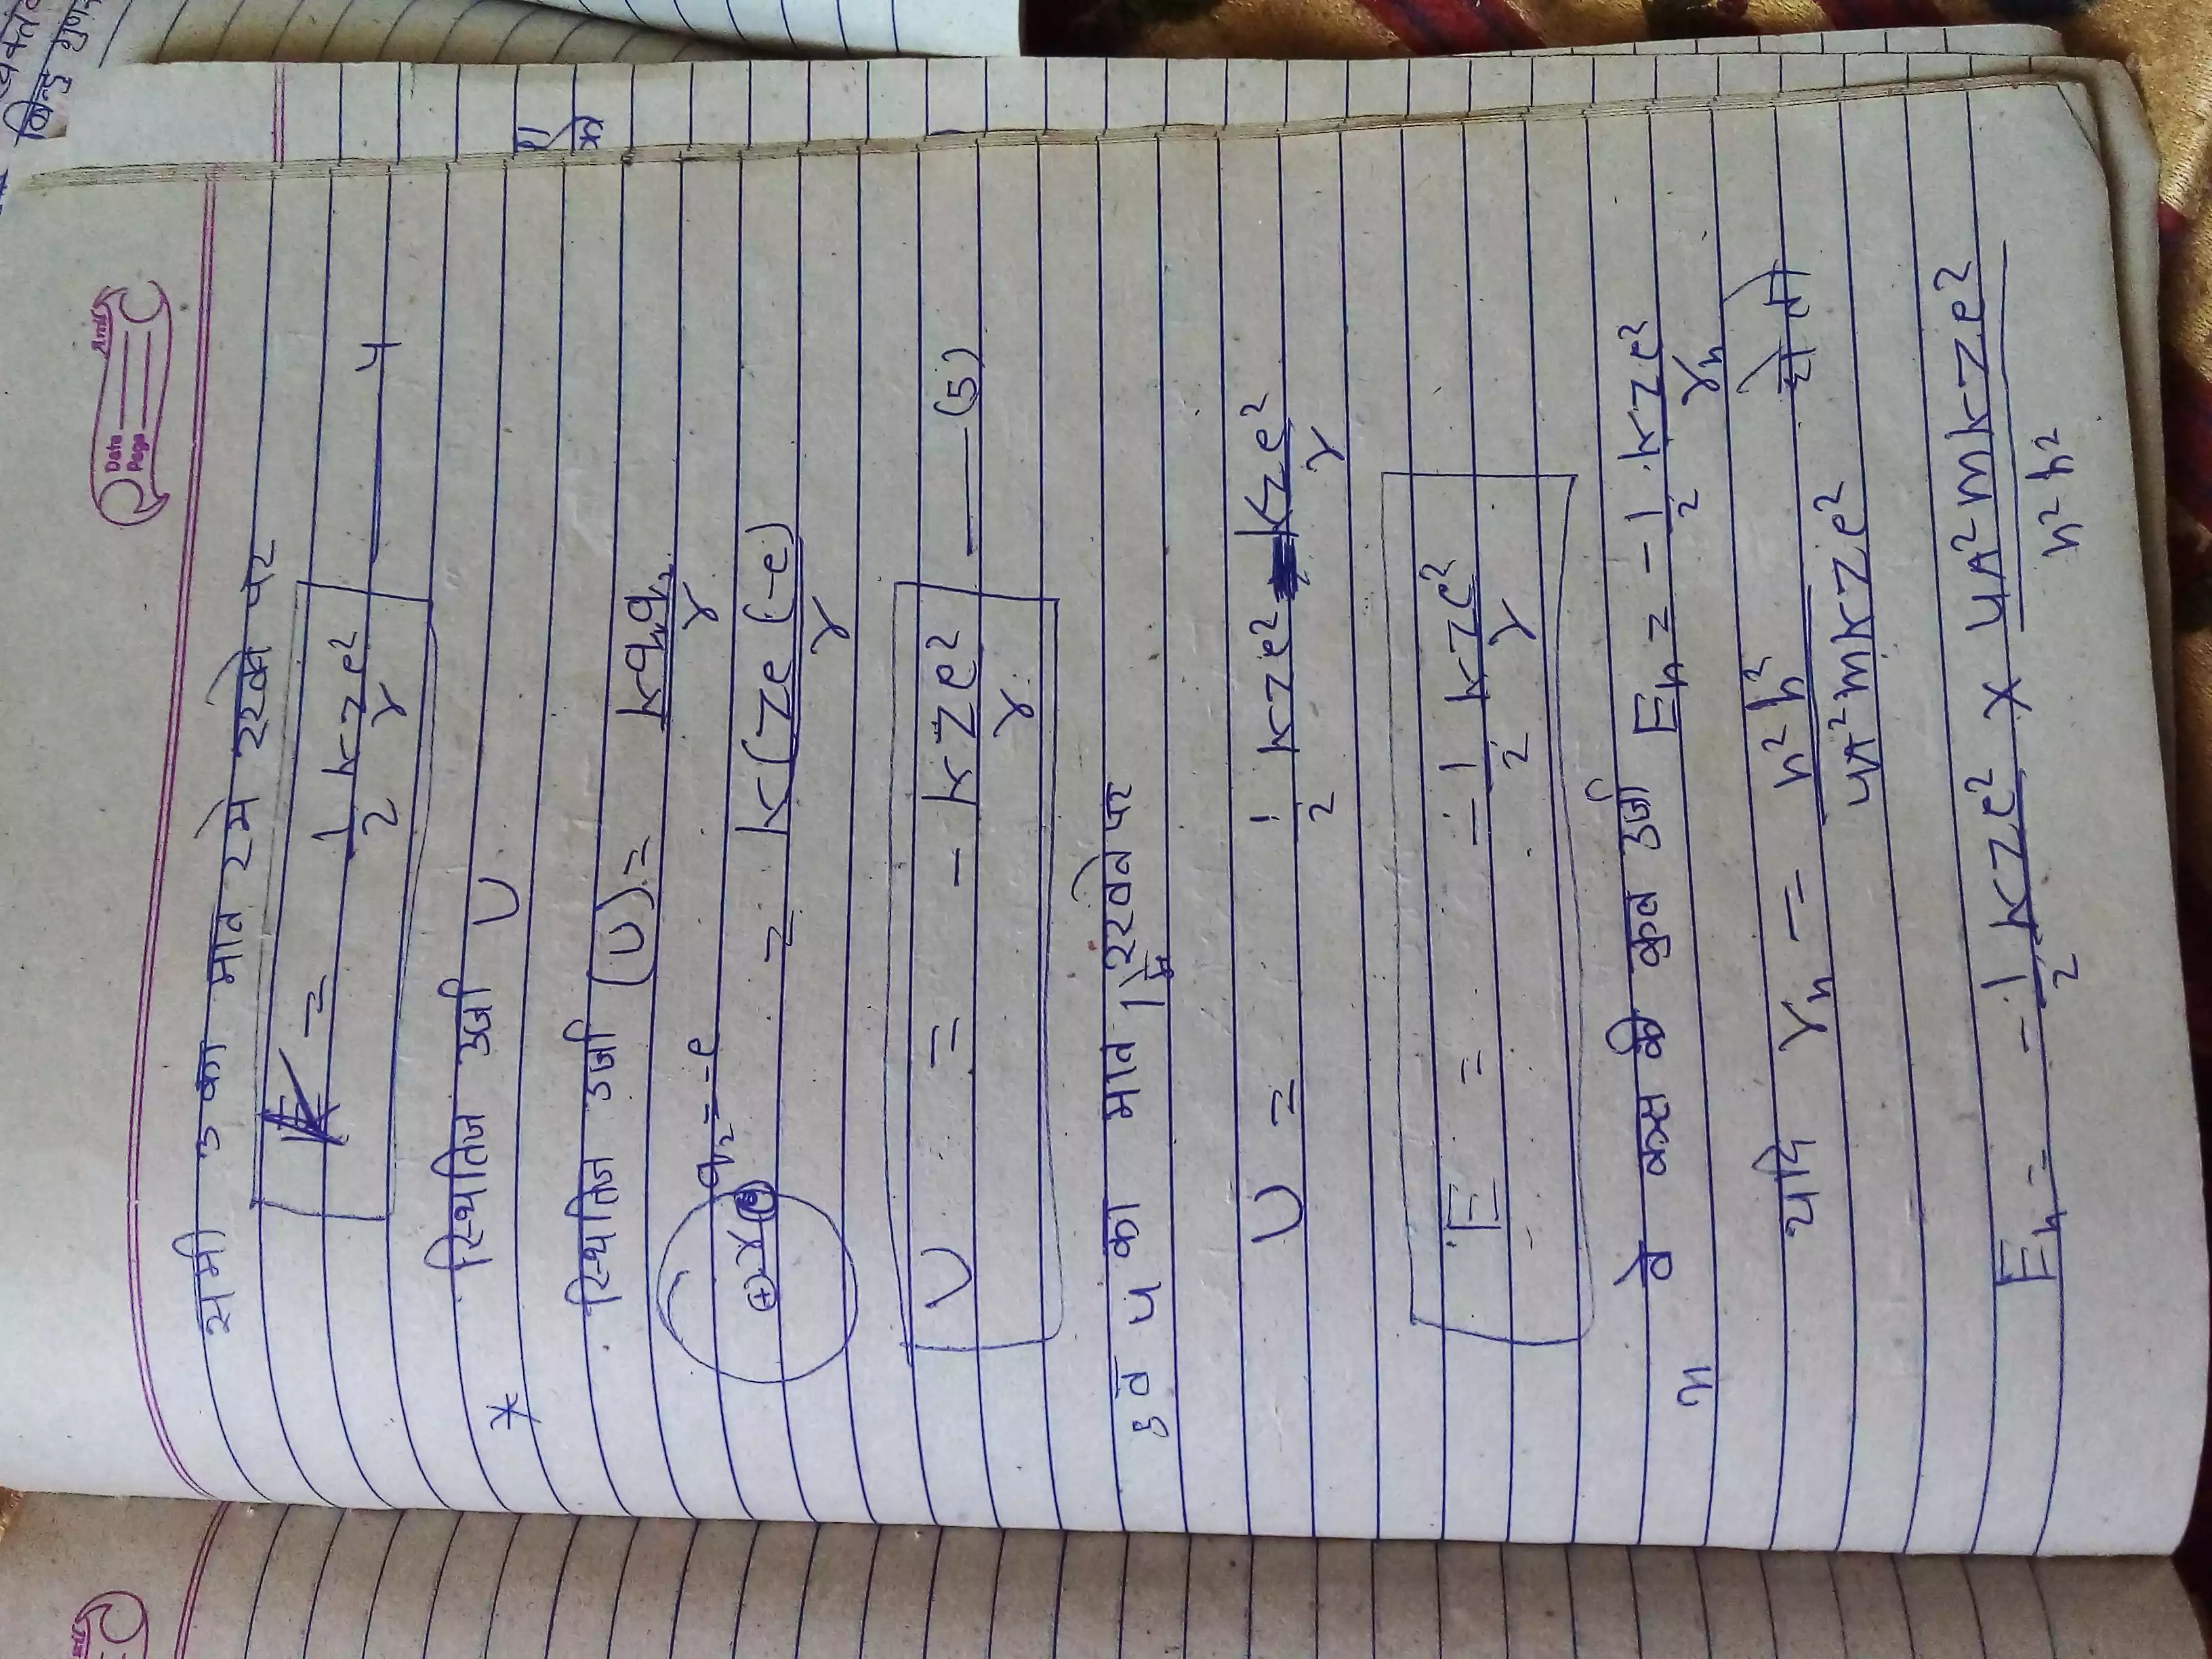 Date Amt
Page
समी 3 का मान रमे रखने पर
K = 1/2 kze²/r —— 4
* स्थितिज उर्जा U
स्थितिज उर्जा (U) = kq₁q₂/r
q₂ = -e
+ r e = k(ze(-e)/r
U = - kze²/r —— (5)
5 व 4 का मान 1 रखने पर
U = 1/2 kze² kze²/r
E = -1/2 kze²/r
n वे कक्ष की कुल उर्जा Eₙ = -1/2 kze²/rₙ
यदि rₙ = n²h²/4π²mkze² हो तो
Eₙ = -1/2 kze² × 4π²mkze²/n²h²